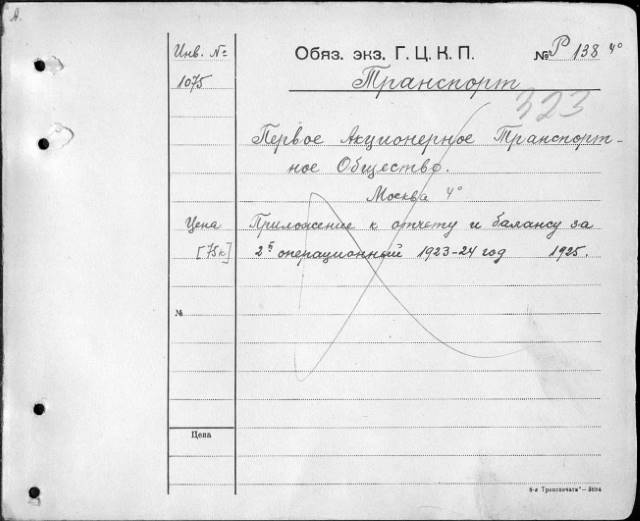 А.
Инв. №
Обяз. экз. Г. Ц. К. П.
№ Р 138 4°
1075
Транспорт
323
Первое Акционерное Транспорт-
ное Общество.
Москва 4°
Цена
Приложение к отчету и балансу за
[75к]
2й операционный 1923-24 год 1925.
№
Цена